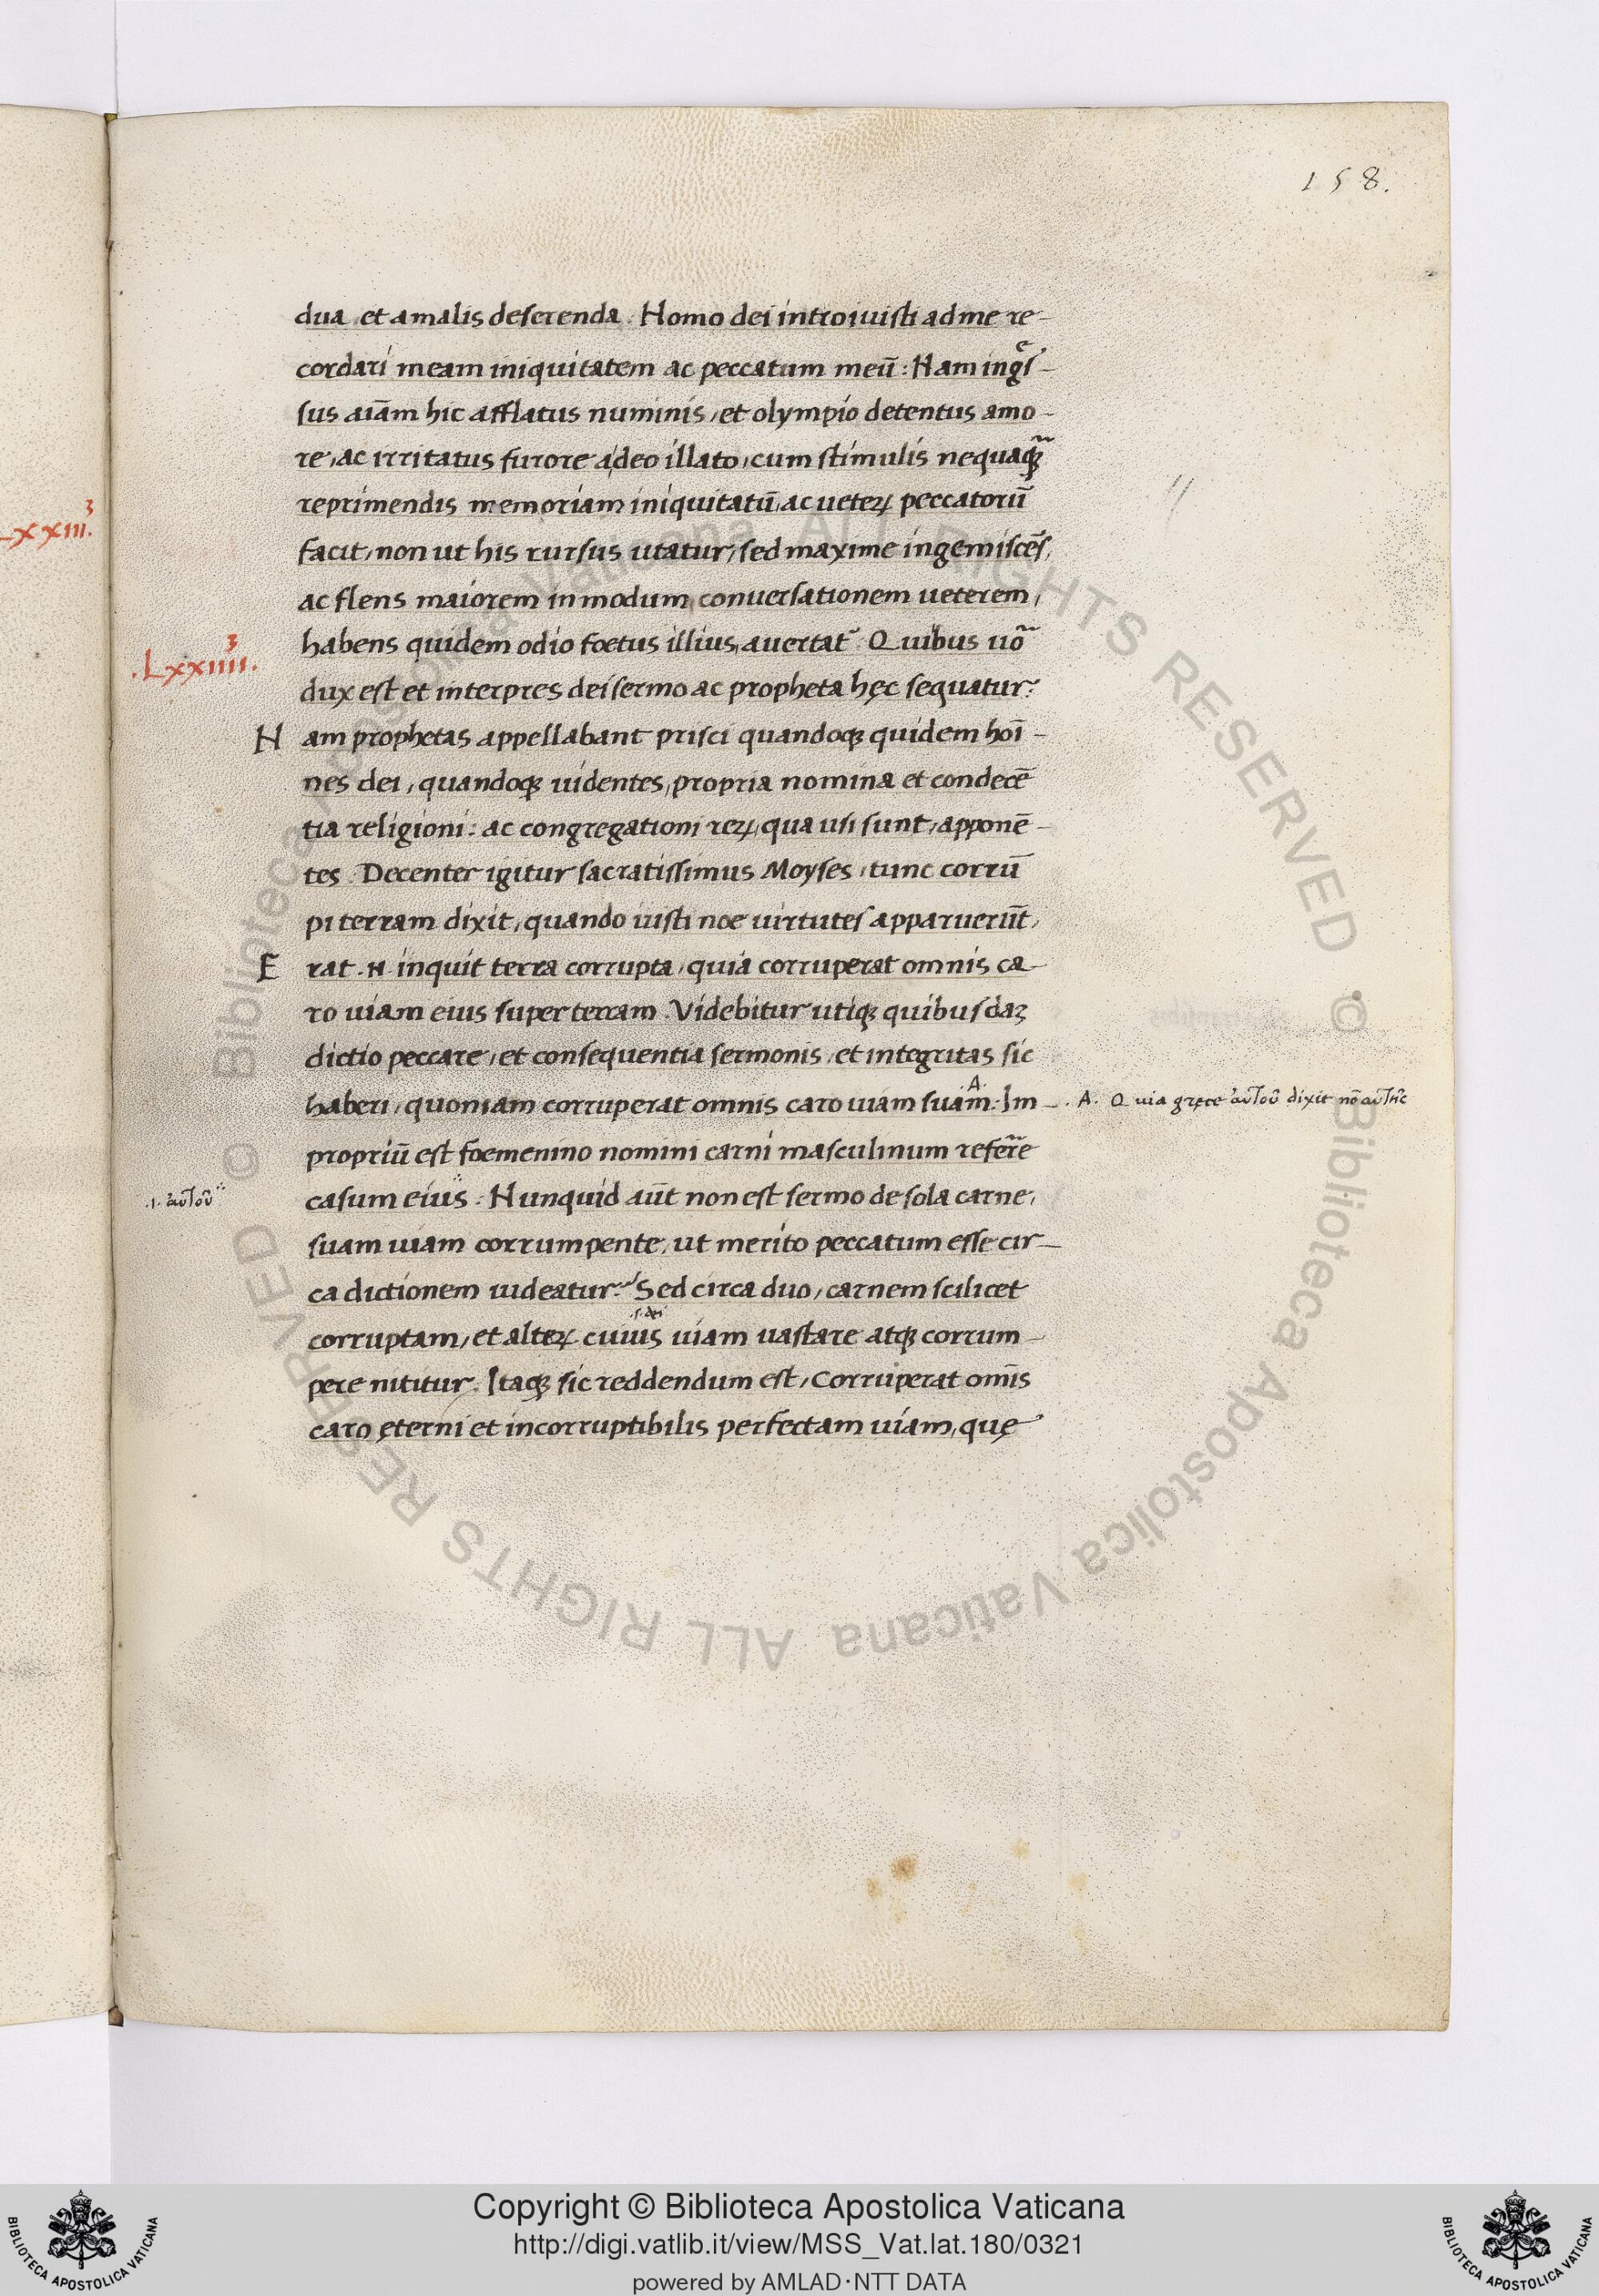 158.
dua et a malis deserenda. Homo dei introiuisti ad me re-
cordari meam iniquitatem ac peccatum meū: Nam ingͤs-
sus aīam hic afflatus numinis, et olympio detentus amo-
re, ac irritatus furore a deo illato, cum stimulis nequaq̃
reprimendis memoriam iniquitatū, ac ueteꝝ peccatorū
facit, non ut his rursus utatur, sed maxime ingemiscēs,
ac flens maiorem in modum, conuersationem ueterem,
.Lxxiiii.³
habens quidem odio foetus illius, auertat. Quibus uō
dux est et interpres dei sermo ac propheta hęc sequatur.
Nam prophetas appellabant prisci quandoqꝫ quidem hoī-
nes dei, quandoqꝫ uidentes, propria nomina et condecē
tia religioni: ac congregationi reꝝ, qua usi sunt, apponē-
tes. Decenter igitur sacratissimus Moyses, tunc corrū
pi terram dixit, quando iusti noe uirtutes apparuerūt,
Erat .N. inquit terra corrupta, quia corruperat omnis ca-
ro uiam eius super terram. Videbitur utiqꝫ quibusdaꝫ
dictio peccare, et consequentia sermonis, et integritas sic
haberi, quoniam corruperat omnis caro uiam suam: Im-
.A.
.A. Quia gręce αὐτοῦ dixit nō αὐτῆς
propriū est foemenino nomini carni masculinum referr̄e
.i. αὐτοῦ
casum eius. Nunquid aūt non est sermo de sola carne,
suam uiam corrumpente, ut merito peccatum esse cir-
ca dictionem uideatur. Sed circa duo, carnem scilicet
.s. dei
corruptam, et alteꝝ cuius uiam uastare atqꝫ corrum-
pere nititur. Itaqꝫ sic reddendum est, Corruperat omīs
caro ęterni et incorruptibilis perfectam uiam, quę
LXXIII.³
© Biblioteca Apostolica Vaticana ALL RIGHTS RESERVED © Biblioteca Apostolica Vaticana ALL RIGHTS RESERVED
Copyright © Biblioteca Apostolica Vaticana
http://digi.vatlib.it/view/MSS_Vat.lat.180/0321
powered by AMLAD·NTT DATA
BIBLIOTECA APOSTOLICA VATICANA
BIBLIOTECA APOSTOLICA VATICANA